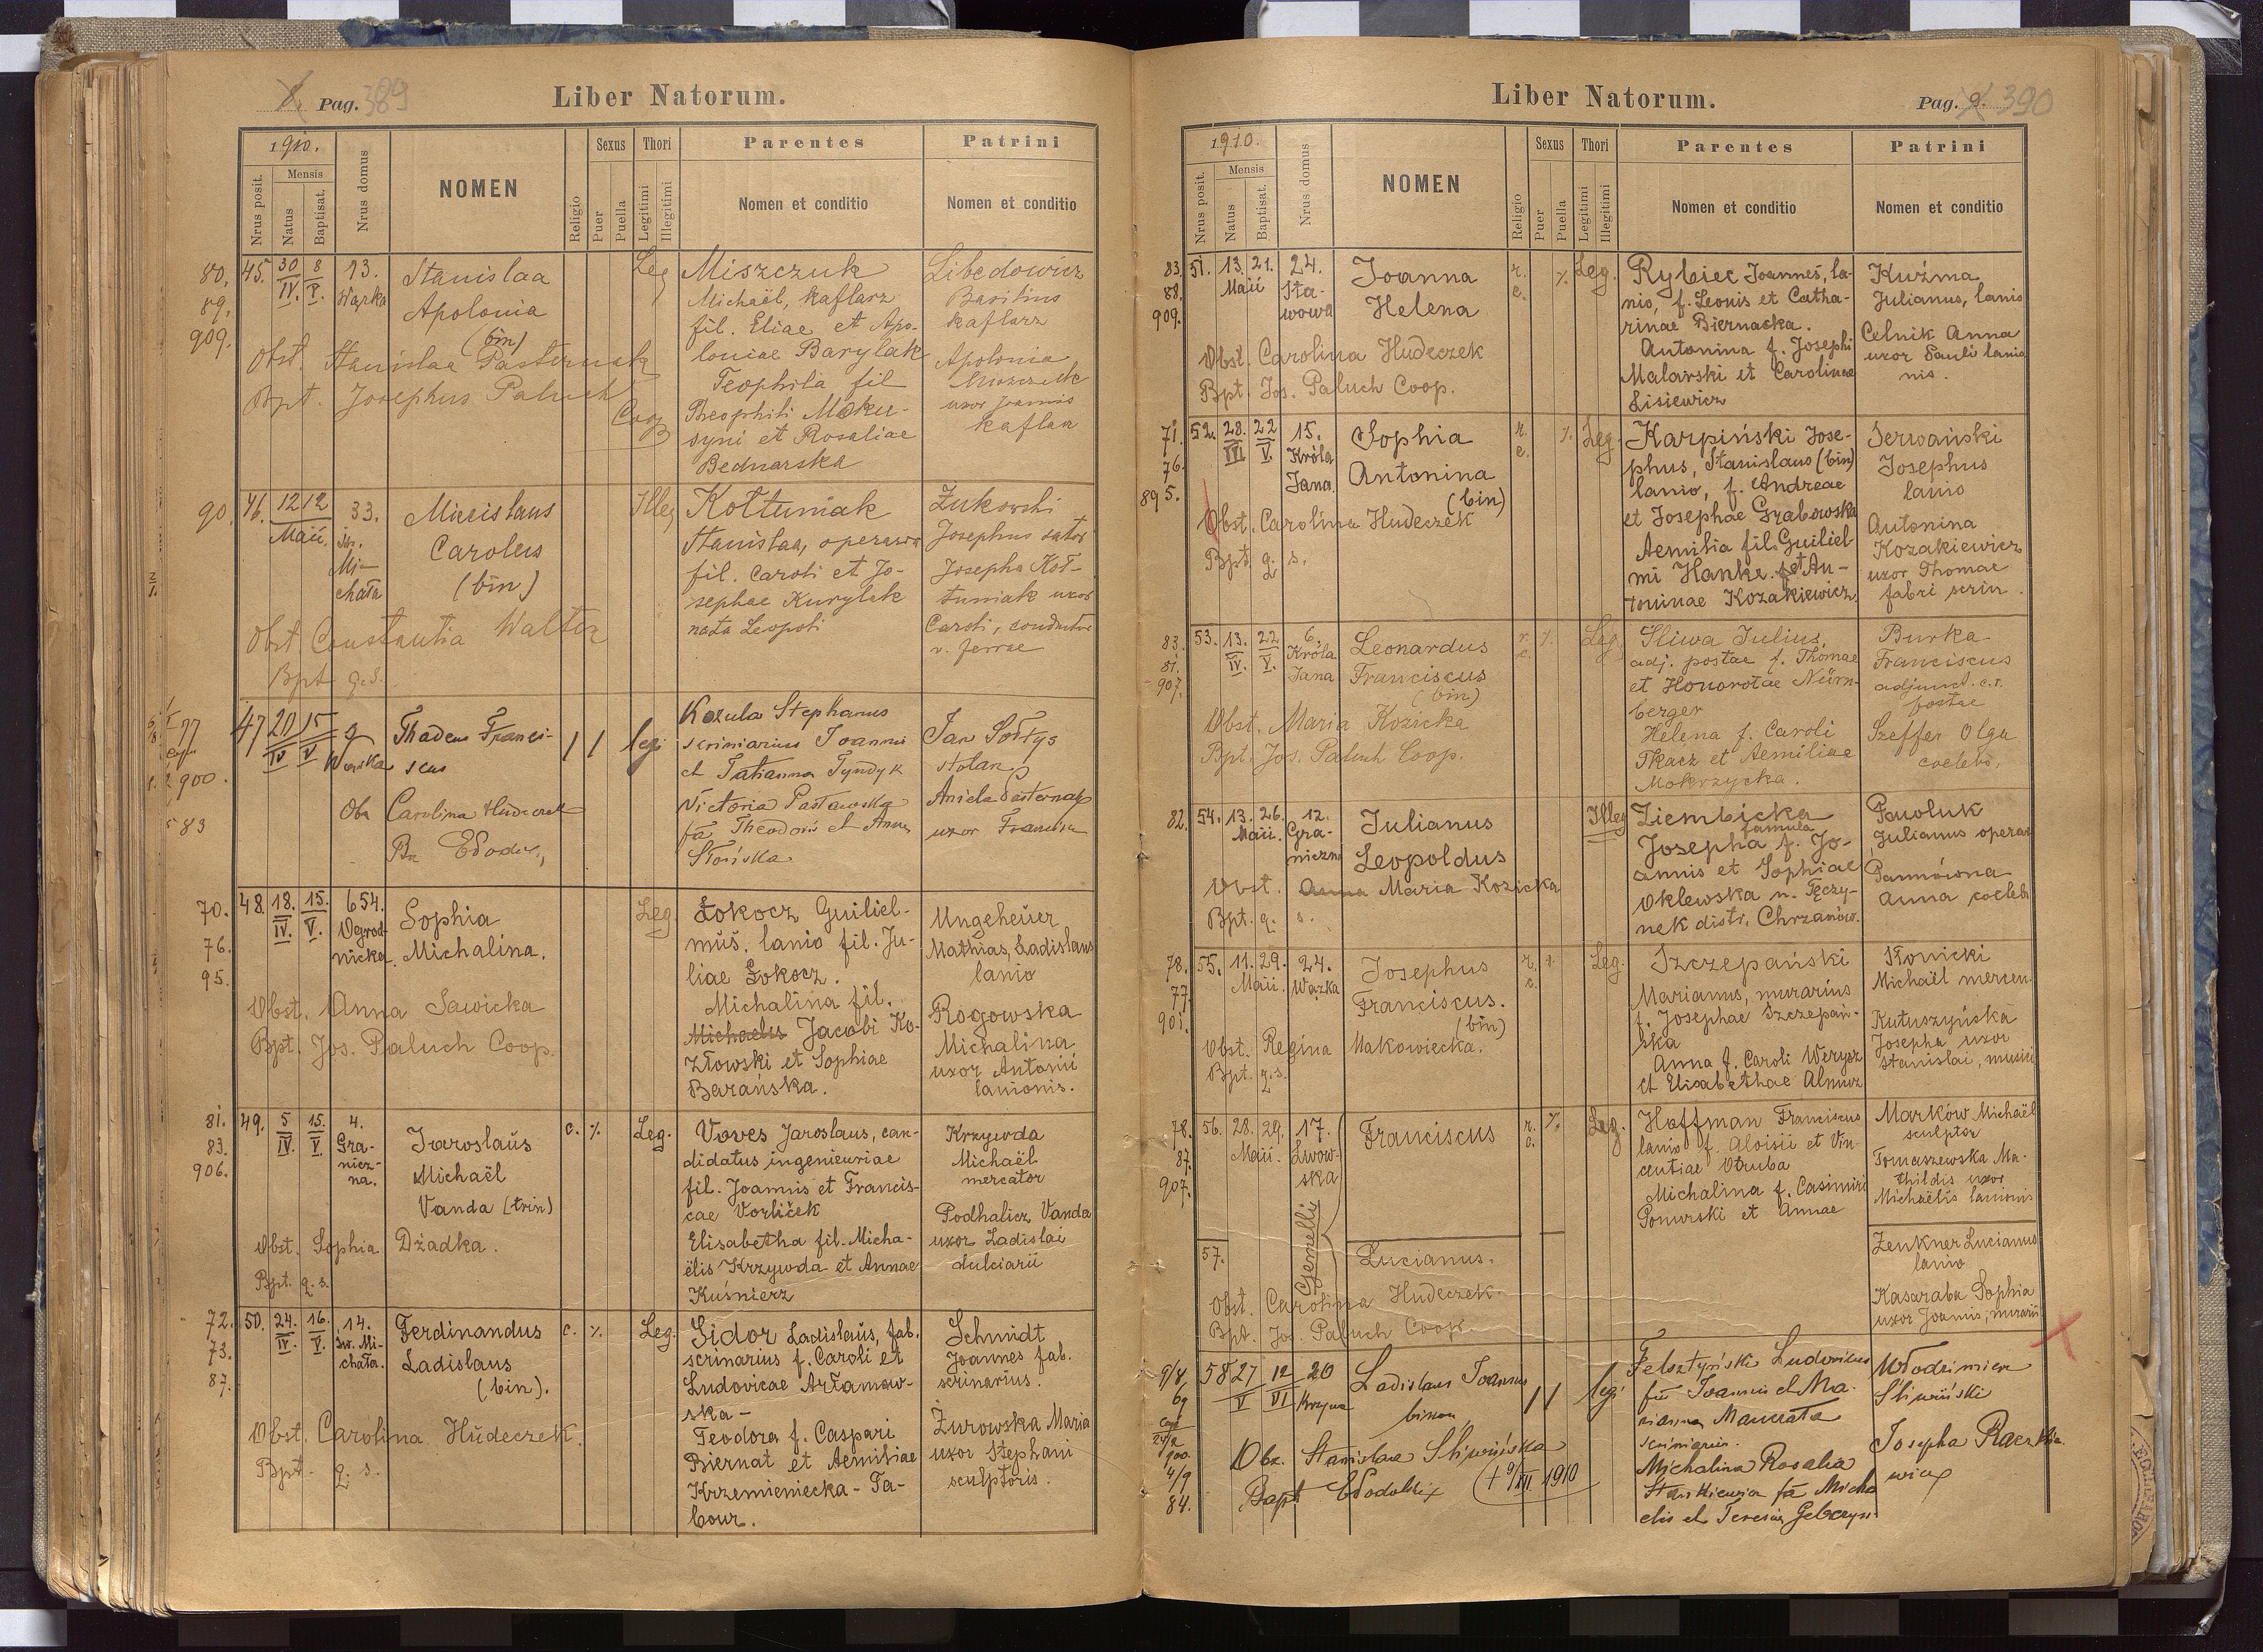 Pag. 389
Liber Natorum.
1910.
Nrus posit.
Mensis
Natus
Baptisat.
Nrus domus
NOMEN
Religio
Sexus
Puer
Puella
Thori
Legitimi
Illegitimi
Parentes
Nomen et conditio
Patrini
Nomen et conditio
80.
89.
909.
45. 30/IV. 8/V. 13. Warka
Stanislaa
Apolonia
(bin)
Obst. Stanislae Pasternak
Bpt. Josephus Paluch
Coop
Leg
Miszczuk
Michaël, kaflarz
fil. Eliae et Apo-
loniae Barylak
Teophila fil
Theophili Moku-
syni et Rosaliae
Bednarska
Libedowicz
Basilius
kaflarz
Apolonia
Miszczuk
uxor Joannis
kaflar
90.
46. 12 12 Maii. 33. św. Mi-
chała
Miecislaus
Carolus
(bin)
Obst Constantia Walter
Bpt q.s.
Illeg
Kołtuniak
Stanislaa, operaria
fil. Caroli et Jo-
sephae Kurylak
nata Leopoli
Żukowski
Josephus sator
Josepha Koł-
tuniak uxor
Caroli, conductor
v. ferrae
77
1900.
83
47 20/IV 15/V 9 Warska
Thadeus Franci-
scus
Obs Carolina Hudeczek
Ba
legi
Kozula Stephanus
scriniarius Joannis
et Tatianna Tyndyk
Victoria Pasławska
fa Theodori et Anna
Słońska
Jan Sołtys
stolarz
Aniela Pasternak
uxor Francisci
70.
76.
95.
48. 18./IV. 15./V. 654. Ogrod-
nicka.
Sophia
Michalina.
Obst. Anna Sawicka
Bpt. Jos. Paluch Coop.
Leg.
Łokocz Guiliel-
mus. lanio fil. Ju-
liae Łokocz.
Michalina fil.
Michaelis Jacobi Ko-
złowski et Sophiae
Barańska.
Ungeheuer
Mathias, Ladislaus
lanio
Rogowska
Michalina
uxor Antonii
lanionis.
81.
83.
906.
49. 5/IV. 15./V. 4. Gra-
nicz-
na.
Jaroslaus
Michaël
Vanda (trin)
Obst. Sophia Dżadka.
Bpt. q. s.
c. Leg.
Voves Jaroslaus, can-
didatus ingenieuriae
fil. Joannis et Francis-
cae Vorliček
Elisabetha fil. Micha-
ëlis Krzywda et Annae
Kuśnierz
Krzywda
Michaël
mercator
Podhalicz Vanda
uxor Ladislai
dulciarii
72.
73.
87.
50. 24./IV. 16./V. 14. św. Mi-
chała.
Ferdinandus
Ladislaus
(bin).
Obst. Carolina Hudeczek.
Bpt. q. s.
c. Leg.
Sidor Ladislaus, fab.
scrinarius f. Caroli et
Ludovicae Artamow-
ska -
Teodora f. Caspari
Biernat et Aemiliae
Krzemieniecka - Ta-
bour.
Schmidt
Joannes fab.
scrinarius.
Żurowska Maria
uxor Stephani
sculptoris.
Liber Natorum.
Pag. 9. 390
1910.
Nrus posit.
Mensis
Natus
Baptisat.
Nrus domus
NOMEN
Religio
Sexus
Puer
Puella
Thori
Legitimi
Illegitimi
Parentes
Nomen et conditio
Patrini
Nomen et conditio
83.
88.
909.
51. 13. 21. Maii 24. Sta-
wowa
Joanna
Helena
Obst. Carolina Hudeczek
Bpt. Jos. Paluch Coop.
r. c. Leg.
Rybiec Joannes, la-
nio, f. Leonis et Catha-
rinae Biernacka.
Antonina f. Josephi
Malarski et Carolinae
Lisiewicz
Kuźma
Julianus, lanio
Celnik Anna
uxor Pauli lanio
nis.
71.
76.
895.
52. 28./III 22/V. 15. Króla
Jana.
Sophia
Antonina
(bin)
Obst. Carolina Hudeczek
Bpt. q. s.
r. c. Leg.
Karpiński Jose-
phus, Stanislaus (bin)
lanio, f. Andreae
et Josephae Grabowska
Aemilia fil. Guiliel-
mi Hanke et An-
toninae Kozakiewicz.
Serwański
Josephus
lanio
Antonina
Kozakiewicz
uxor Thomae
fabri scrin.
83.
81.
907.
53. 13./IV. 22/V. 6. Króla
Jana
Leonardus
Franciscus
(bin)
Obst. Maria Kozicka
Bpt. Jos. Paluch Coop.
r. c. Leg.
Śliwa Julius,
adj. postae f. Thomae
et Honoratae Nürn-
berger
Helena f. Caroli
Tkacz et Aemiliae
Mokrzycka.
Burka
Franciscus
adjunct. c.r.
postae
Szeffer Olga
coelebs.
82.
54. 13. 26. Maii. 12. Gra-
niczna
Julianus
Leopoldus
Obst. Anna Maria Kozicka
Bpt. q. s.
Illeg
Ziembicka
famula
Josepha f. Jo-
annis et Sophiae
Oklewska n. Tęczy-
nek distr. Chrzanów.
Pawoluk
Julianus operar
Pannówna
Anna coelebs
78.
77.
901.
55. 11. 29. Maii. 24. Wązka
Josephus
Franciscus.
(bin)
Obst. Regina Makowiecka.
Bpt. q. s.
r. c. Leg.
Szczepański
Marianus, murarius
f. Josephae Szczepań-
ska
Anna f. Caroli Werysz
et Elisabethae Almusz
Słonicki
Michaël mercen.
Kutuszyńska
Josepha uxor
Stanislai, musici
78.
87.
907.
56. 28. 29. Maii. 17. Lwow-
ska
Franciscus
r. c. Leg.
Hoffman Franciscus
lanio f. Aloisii et Vin-
centiae Otruba
Michalina f. Casimiri
Ponurski et Annae
Marków Michaël
sculptor
Tomaszewska Ma-
thildis uxor
Michaëlis lanionis
Gemelli
57.
Lucianus.
Obst. Carolina Hudeczek.
Bpt. Jos. Paluch Coop.
Zenkner Lucianus
lanio
Kasaraba Sophia
uxor Joannis, murarii
9/8
69
1900.
4/9
84.
58 27/V 12/VI 20 Krzywa
Ladislaus Joannes
binom.
Obs. Stanislava Śliwińska
Bapt
+ 9/XII 1910
legi
Felsztyński Ludovicus
fil Joannis et Ma-
rianna Mamrata
scriniarius.
Michalina Rosalia
Stankiewicz fa Micha
elis et Teresia
Włodzimierz
Śliwiński
Josepha Raczkie
wicz